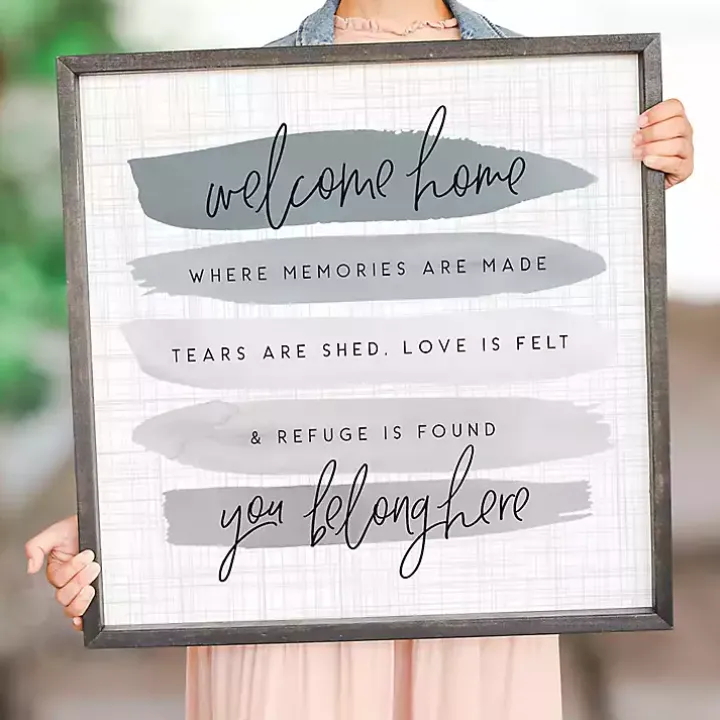 welcome home
WHERE MEMORIES ARE MADE
TEARS ARE SHED. LOVE IS FELT
& REFUGE IS FOUND
you belong here